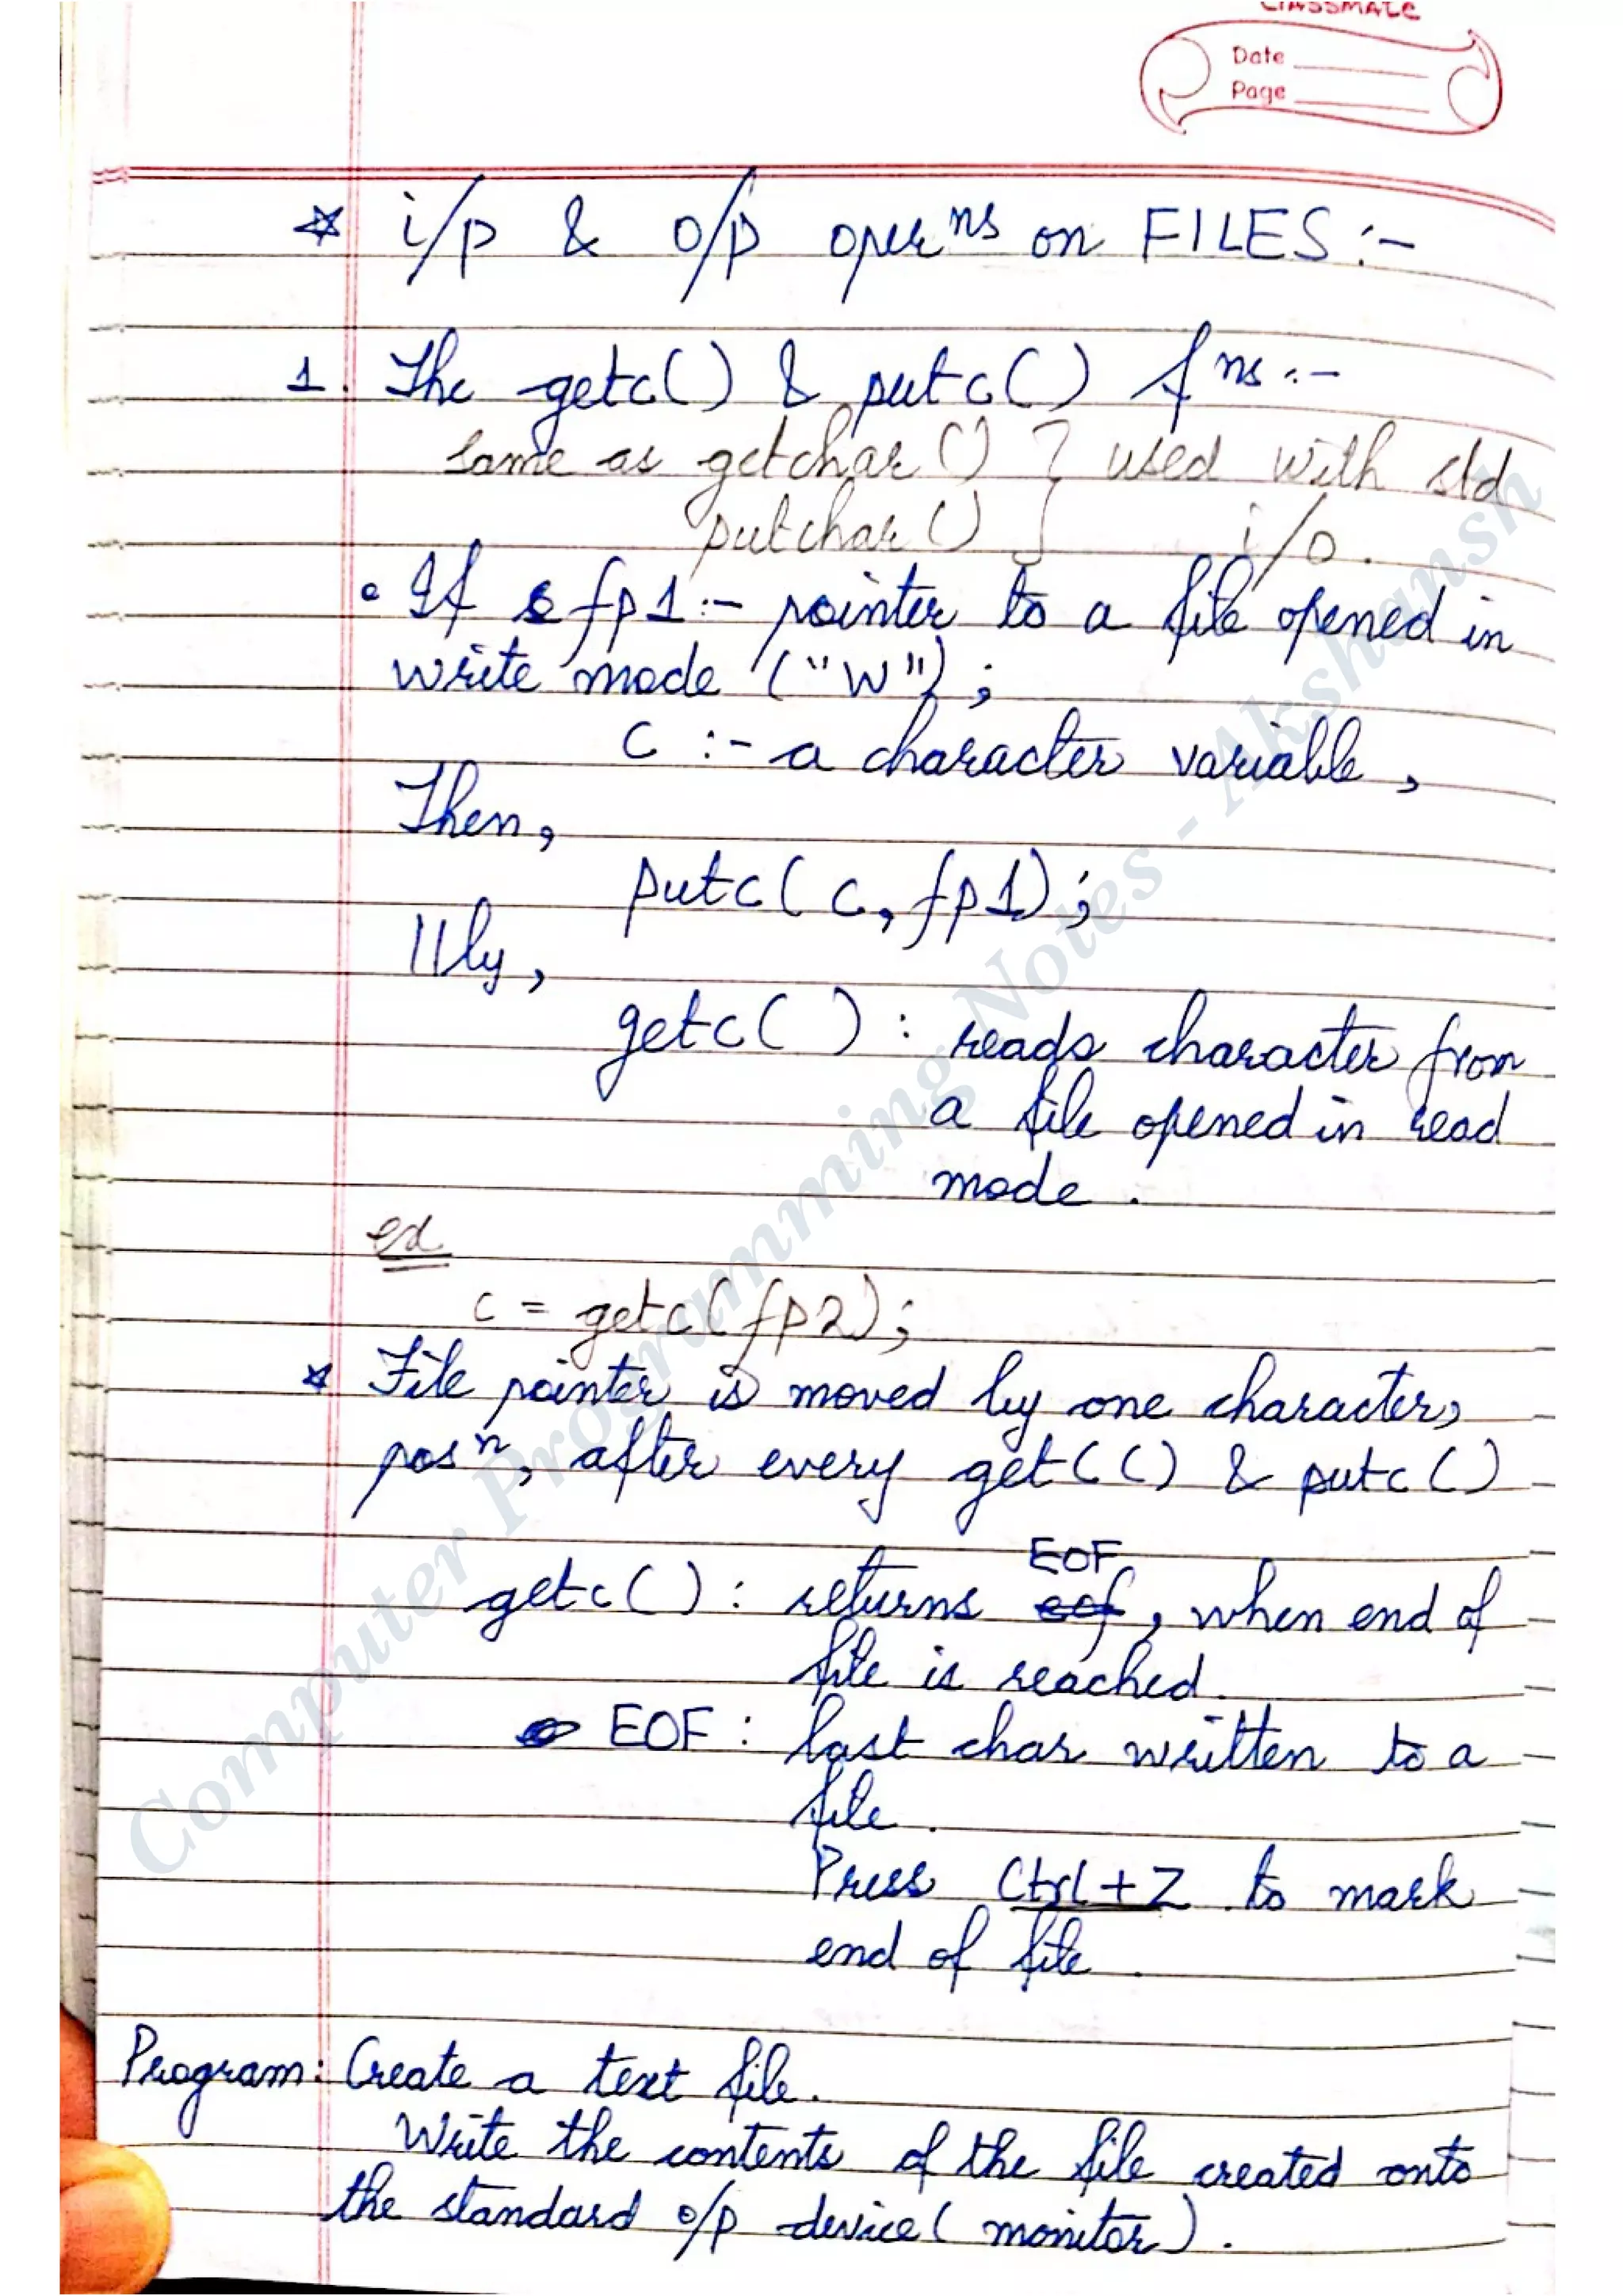 classmate
Date
Page
☆ i/p & o/p oper^ns on FILES :-
1. The getc() & putc() f^ns :-
same as getchar() } used with std
putchar() } i/o.
• If fp1 :- pointer to a file opened in
write mode ("w");
c :- a character variable,
Then,
putc(c, fp1);
llly,
getc( ) : reads character from
a file opened in read
mode .
ex
c = getc(fp2);
☆ File pointer is moved by one character,
pos^n, after every getc() & putc()
EOF
getc() : returns eof, when end of
file is reached.
EOF : last char written to a
file .
Press Ctrl+Z to mark
end of file .
Program : Create a text file.
Write the contents of the file created onto
the standard o/p device (monitor) .
Computer Programming Notes - Akshansh